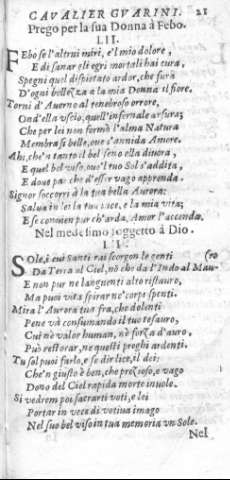 CAVALIER GVARINI. 21
Prego per la sua Donna à Febo.
LII.
FEbo se l'altrui miri, e'l mio dolore,
E di sanar gli egri mortali hai cura,
Spegni quel dispietato ardor, che fura
D'ogni bellezza a la mia Donna il fiore.
Torni d'Averno al tenebroso orrore,
Ond'ella uscio, quell'infernale arsura;
Che per lei non formò l'alma Natura
Membra si belle, ove s'annida Amore.
Ahi, che'n tanto il bel seno ella divora,
E quel bel viso, ove'l tuo Sol s'addita,
E donde par che d'esser vago apprenda.
Signor soccorri à la tua bella Aurora:
Salva in lei la tua luce, e la mia vita;
E se convien pur ch'arda, Amor l'accenda.
Nel medesimo soggetto à Dio.
SOle, i cui Santi rai scorgon le genti (ro
Da Terra al Ciel, nō che da l'Indo al Mau-
E non pur ne languenti alto ristauro,
Ma puoi vita spirar ne' corpi spenti.
Mira l'Aurora tua fra, che dolenti
Pene và consumando il tuo tesauro,
Cui nè valor human, nè forza d'auro,
Può restorar, ne questi preghi ardenti.
Tu sol puoi farlo, e se dir lice, il dei;
Che'n giusto è ben, che prezioso, e vago
Dono del Ciel rapida morte invole.
Si vedrem poi sacrarti voti, e lei
Portar in vece di votiva imago
Nel suo bel viso in tua memoria un Sole.
Nel